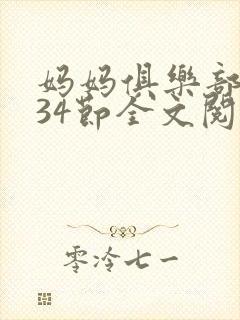 妈妈俱樂部
34節全文閱
零泠七一